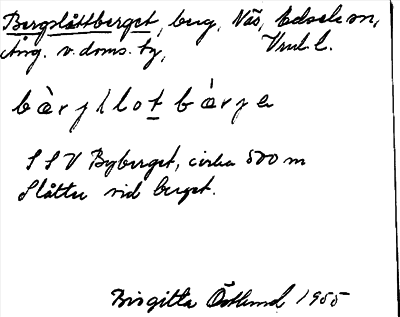 Bergslåttberget, berg, Näs, Edsele sn,
Ång. v. doms. ty,
bàrjslotbárje
SSV Byberget, cirka 500 m
Slåtter vid berget.
Birgitta Östlund 1955